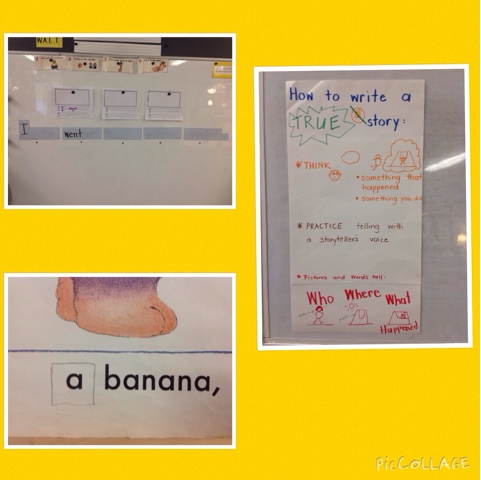 W.A.L.T.
I went
a banana,
How to write a
TRUE story:
* THINK
* something that
happened
* Something you did
* PRACTICE telling with
a storytellers voice
* Pictures and words tell:
Who Where What
Happened
PIC COLLAGE